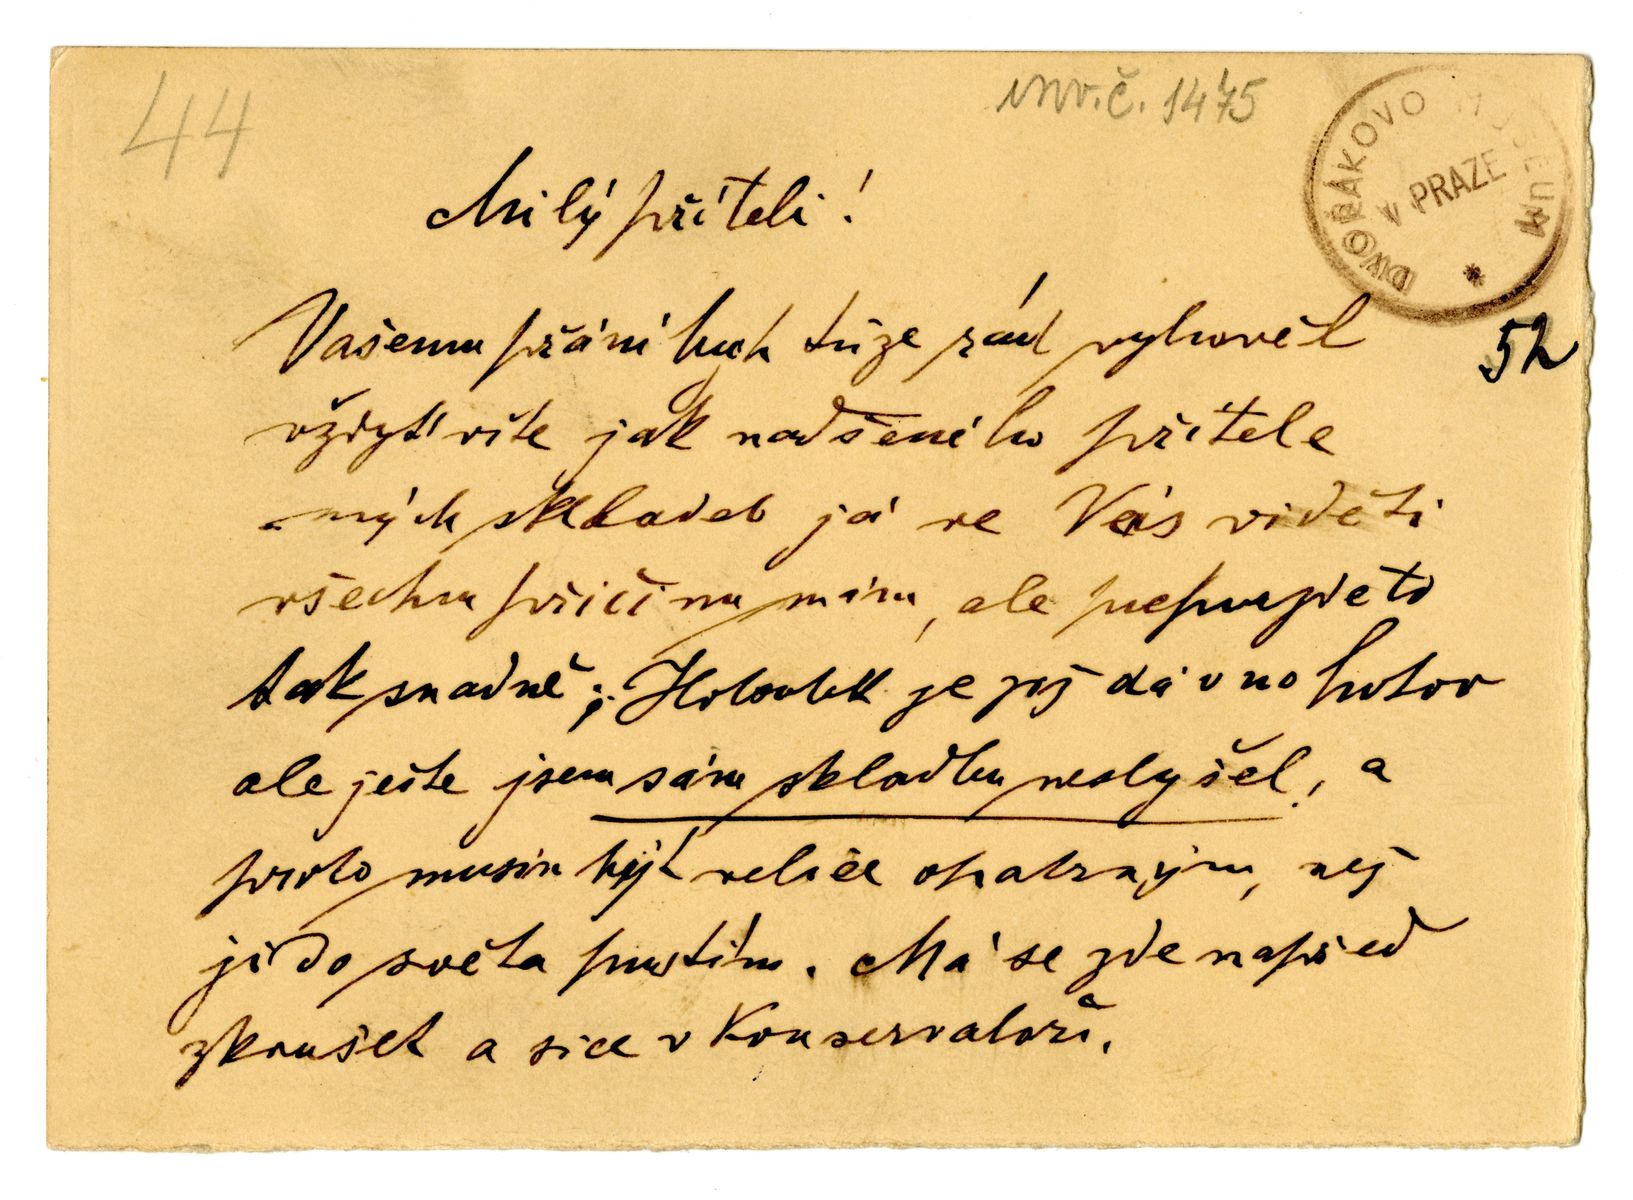 44
inv. č. 1475
DVOŘÁKOVO MUSEUM
V PRAZE
*
Milý příteli!
Vašemu přání bych túze rád vyhověl
52
vždyť víte jak nadšeného přítele
mých skladeb já ve Vás viděti
všechnu příčinu mám, ale nepujde to
tak snadně; Holoubek je již dávno hotov
ale ješte jsem sám skladbu neslyšel, a
proto musím být velice opatrným, než
ji do světa pustím. Má se zde napřed
zkoušet a sice v Konservatoři.